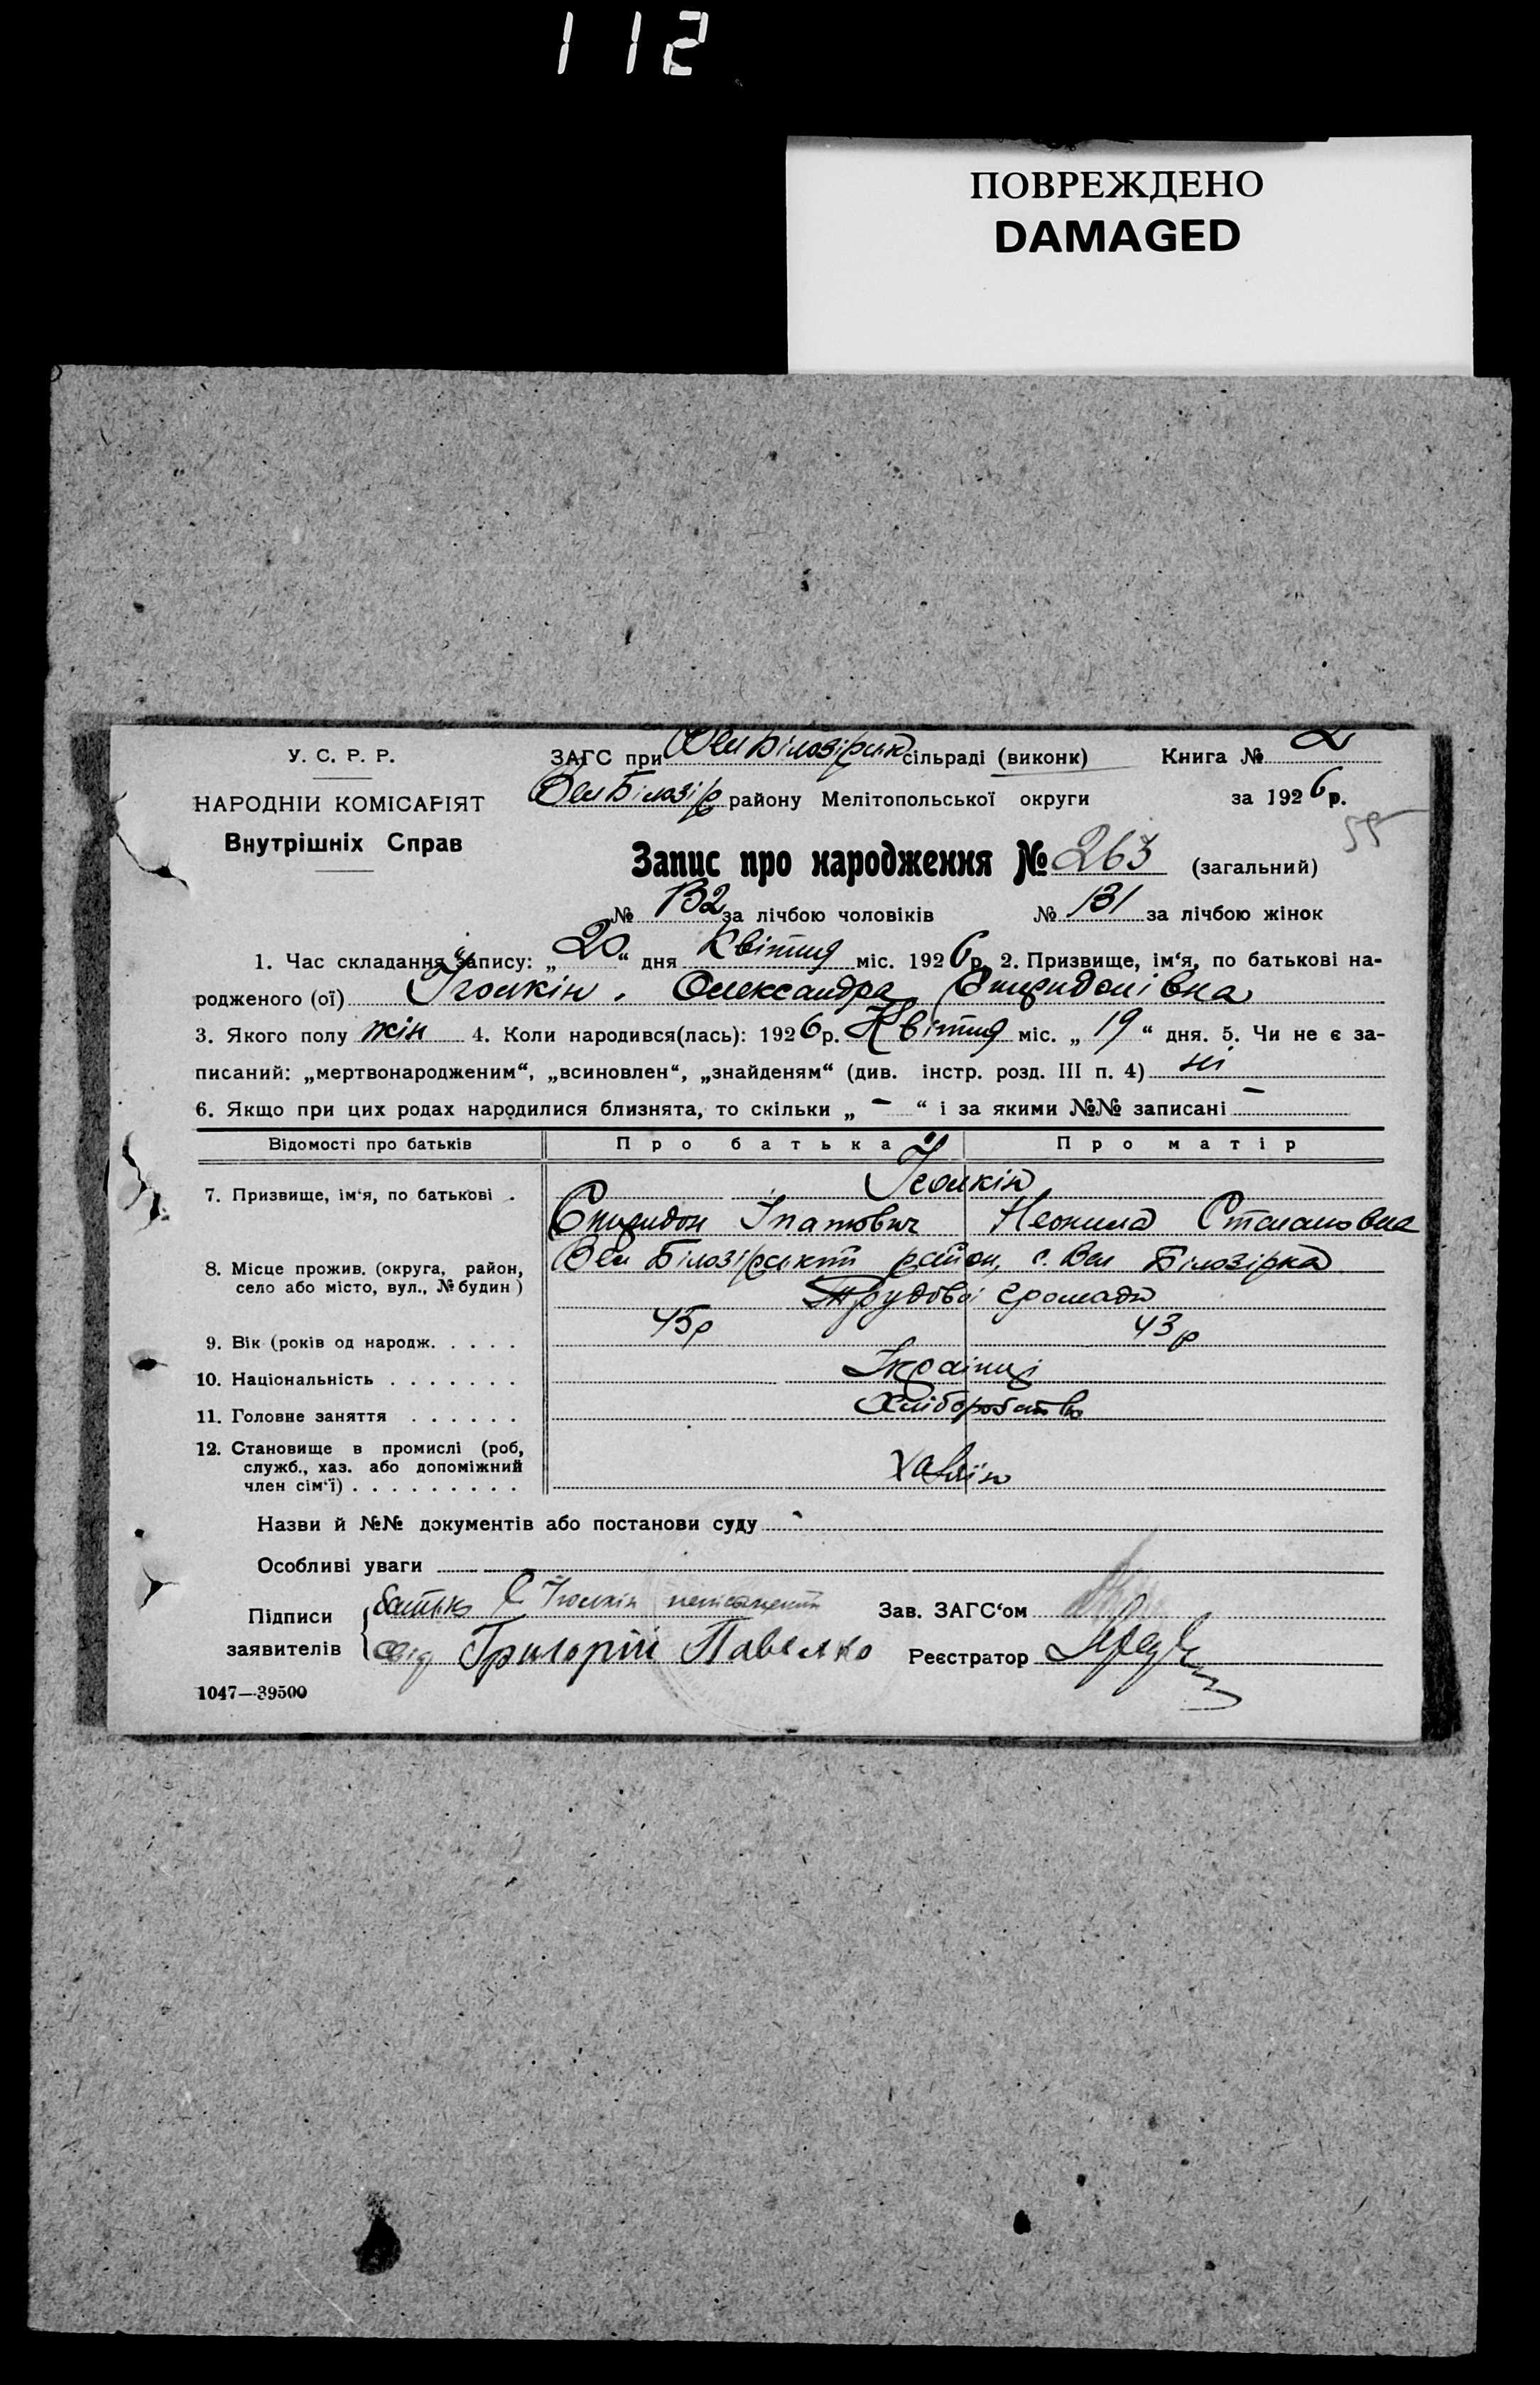 112
ПОВРЕЖДЕНО
DAMAGED
У. С. Р. Р.
НАРОДНІЙ КОМІСАРІЯТ
Внутрішніх Справ
ЗАГС при Вел Білозірськ сільраді (виконк) Книга № 2
Вел Білозір району Мелітопольської округи за 1926 р.
55
Запис про народження № 263 (загальний)
№ 132 за лічбою чоловіків № 131 за лічбою жінок
1. Час складання запису: „20“ дня Квітня міс. 1926 р. 2. Призвище, ім‘я, по батькові на-
родженого (ої) Іголкін. Олександра Спиридонівна
3. Якого полу жін 4. Коли народився(лась): 1926 р. Квітня міс. „19“ дня. 5. Чи не є за-
писаний: „мертвонародженим“, „всиновлен“, „знайденям“ (див. інстр. розд. III п. 4) ні
6. Якщо при цих родах народилися близнята, то скільки „ - “ і за якими №№ записані -
Відомості про батьків Про батька Про матір
7. Призвище, ім‘я, по батькові . Іголкін
Спиридон Іпатович Неонила Степановна
8. Місце прожив. (округа, район, село або місто, вул., № будин) Вел Білозірський район, с. Вел Білозірка
Трудової громади
9. Вік (років од народж. . . . . 45 р 43 р
10. Національність . . . . . . . Українці
11. Головне заняття . . . . . . Хліборобство
12. Становище в промислі (роб, служб., хаз. або допоміжний член сім‘ї) . . . . . . . . .
Назви й №№ документів або постанови суду -
Особливі уваги
Підписи заявителів
батько С Іголкін неписьменний
свід Григорій Павелко
Зав. ЗАГС‘ом
Реєстратор
1047—39500